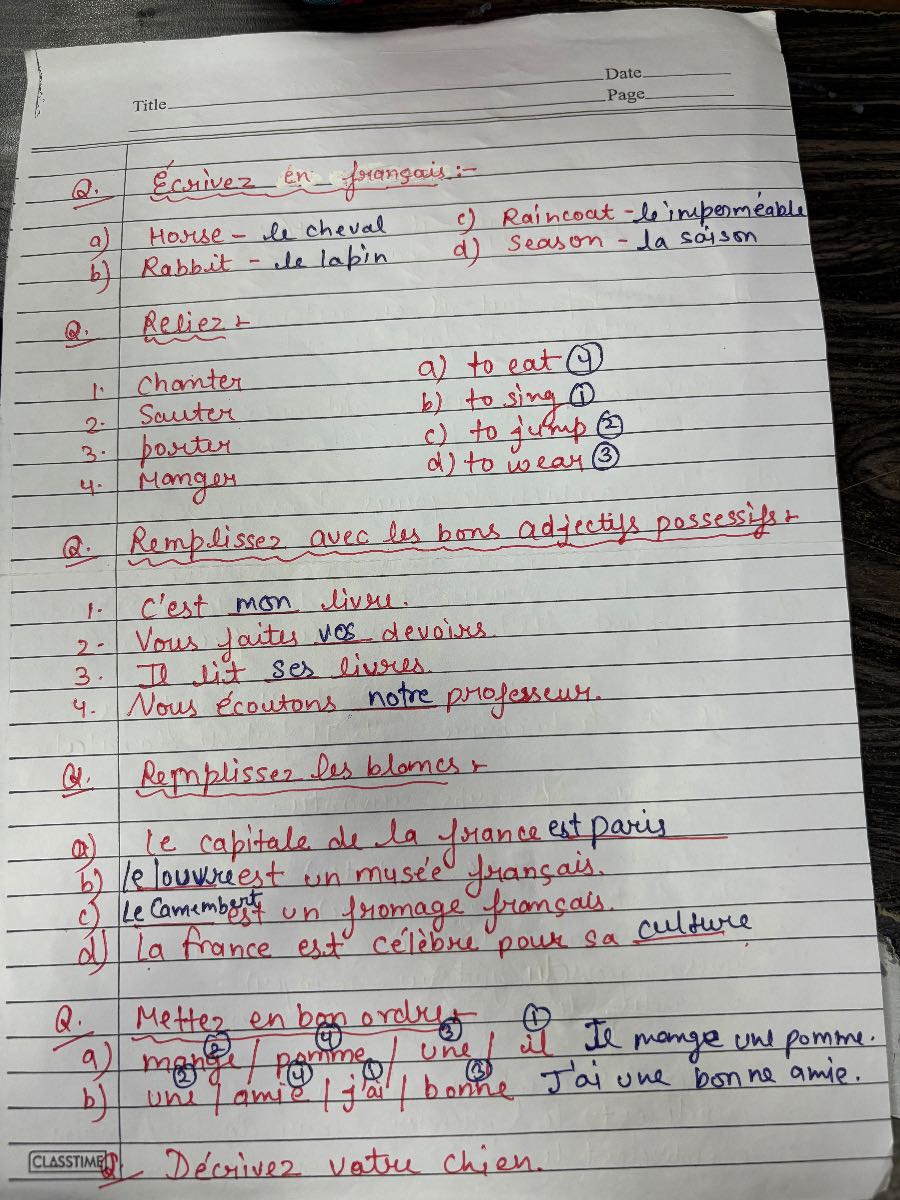 Title
Date
Page
Q. Écrivez en français :-
a) Horse - le cheval c) Raincoat - le imperméable
b) Rabbit - le lapin d) Season - la saison
Q. Reliez :-
1. Chanter a) to eat 4
2. Sauter b) to sing 1
3. porter c) to jump 2
4. Manger d) to wear 3
Q. Remplissez avec les bons adjectifs possessifs :-
1. C'est mon livre.
2. Vous faites vos devoirs.
3. Il lit ses livres.
4. Nous écoutons notre professeur.
Q. Remplissez les blancs :-
a) Le capitale de la france est paris
b) le louvre est un musée français.
c) Le Camembert est un fromage français.
d) La france est célèbre pour sa culture
Q. Mettez en bon ordre :-
2 4 3 1
a) mange / pomme / une / il Il mange une pomme.
2 4 1 3
b) une / amie / j'ai / bonne J'ai une bonne amie.
CLASSTIME
Q. Décrivez votre chien.